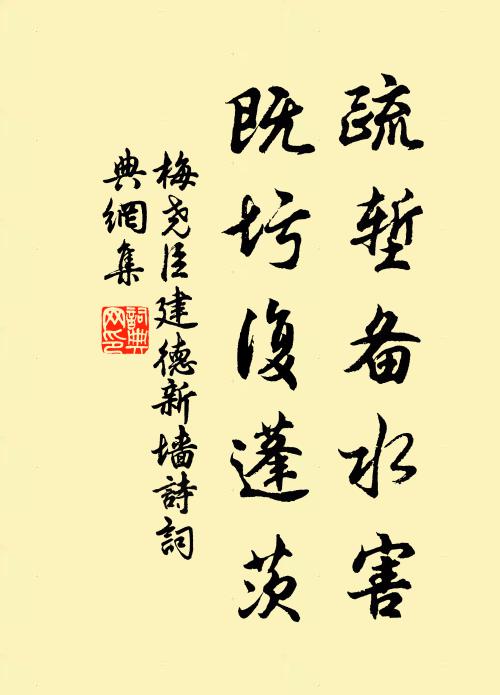 疏堑备水害
既圬復蓬茨
梅尧臣建德新墙詩詞
典網集
詞典网印